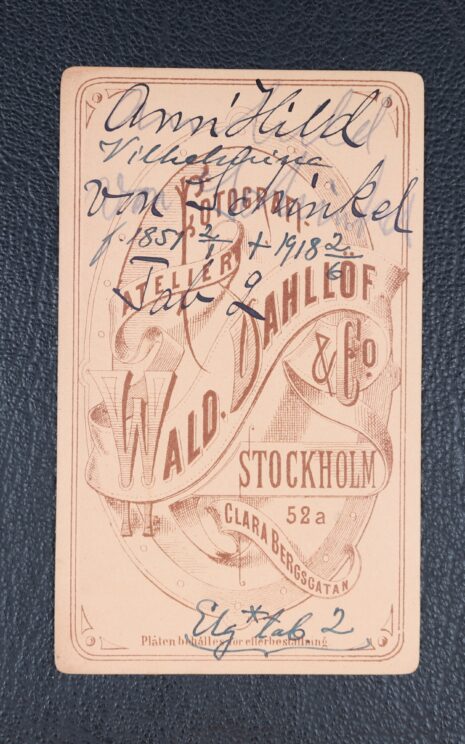 Ann'Hild
Vilhelmina
von Schinkel
f. 1851 2/1 + 1918 2/6
Tab 2
FOTOGRAF.
ATELIER
WALD. DAHLLÖF
& Co.
STOCKHOLM
52a
CLARA BERGSGATAN
Elg* tab 2
Plåten behålles för efterbeställning